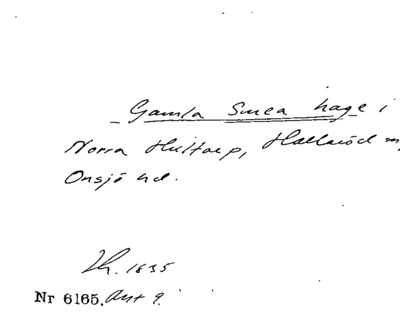 Gamla Smea hage i
Norra Hultarp, Hallaröd sn,
Onsjö hd.
Th. 1835
Nr 6165. Ant 9.